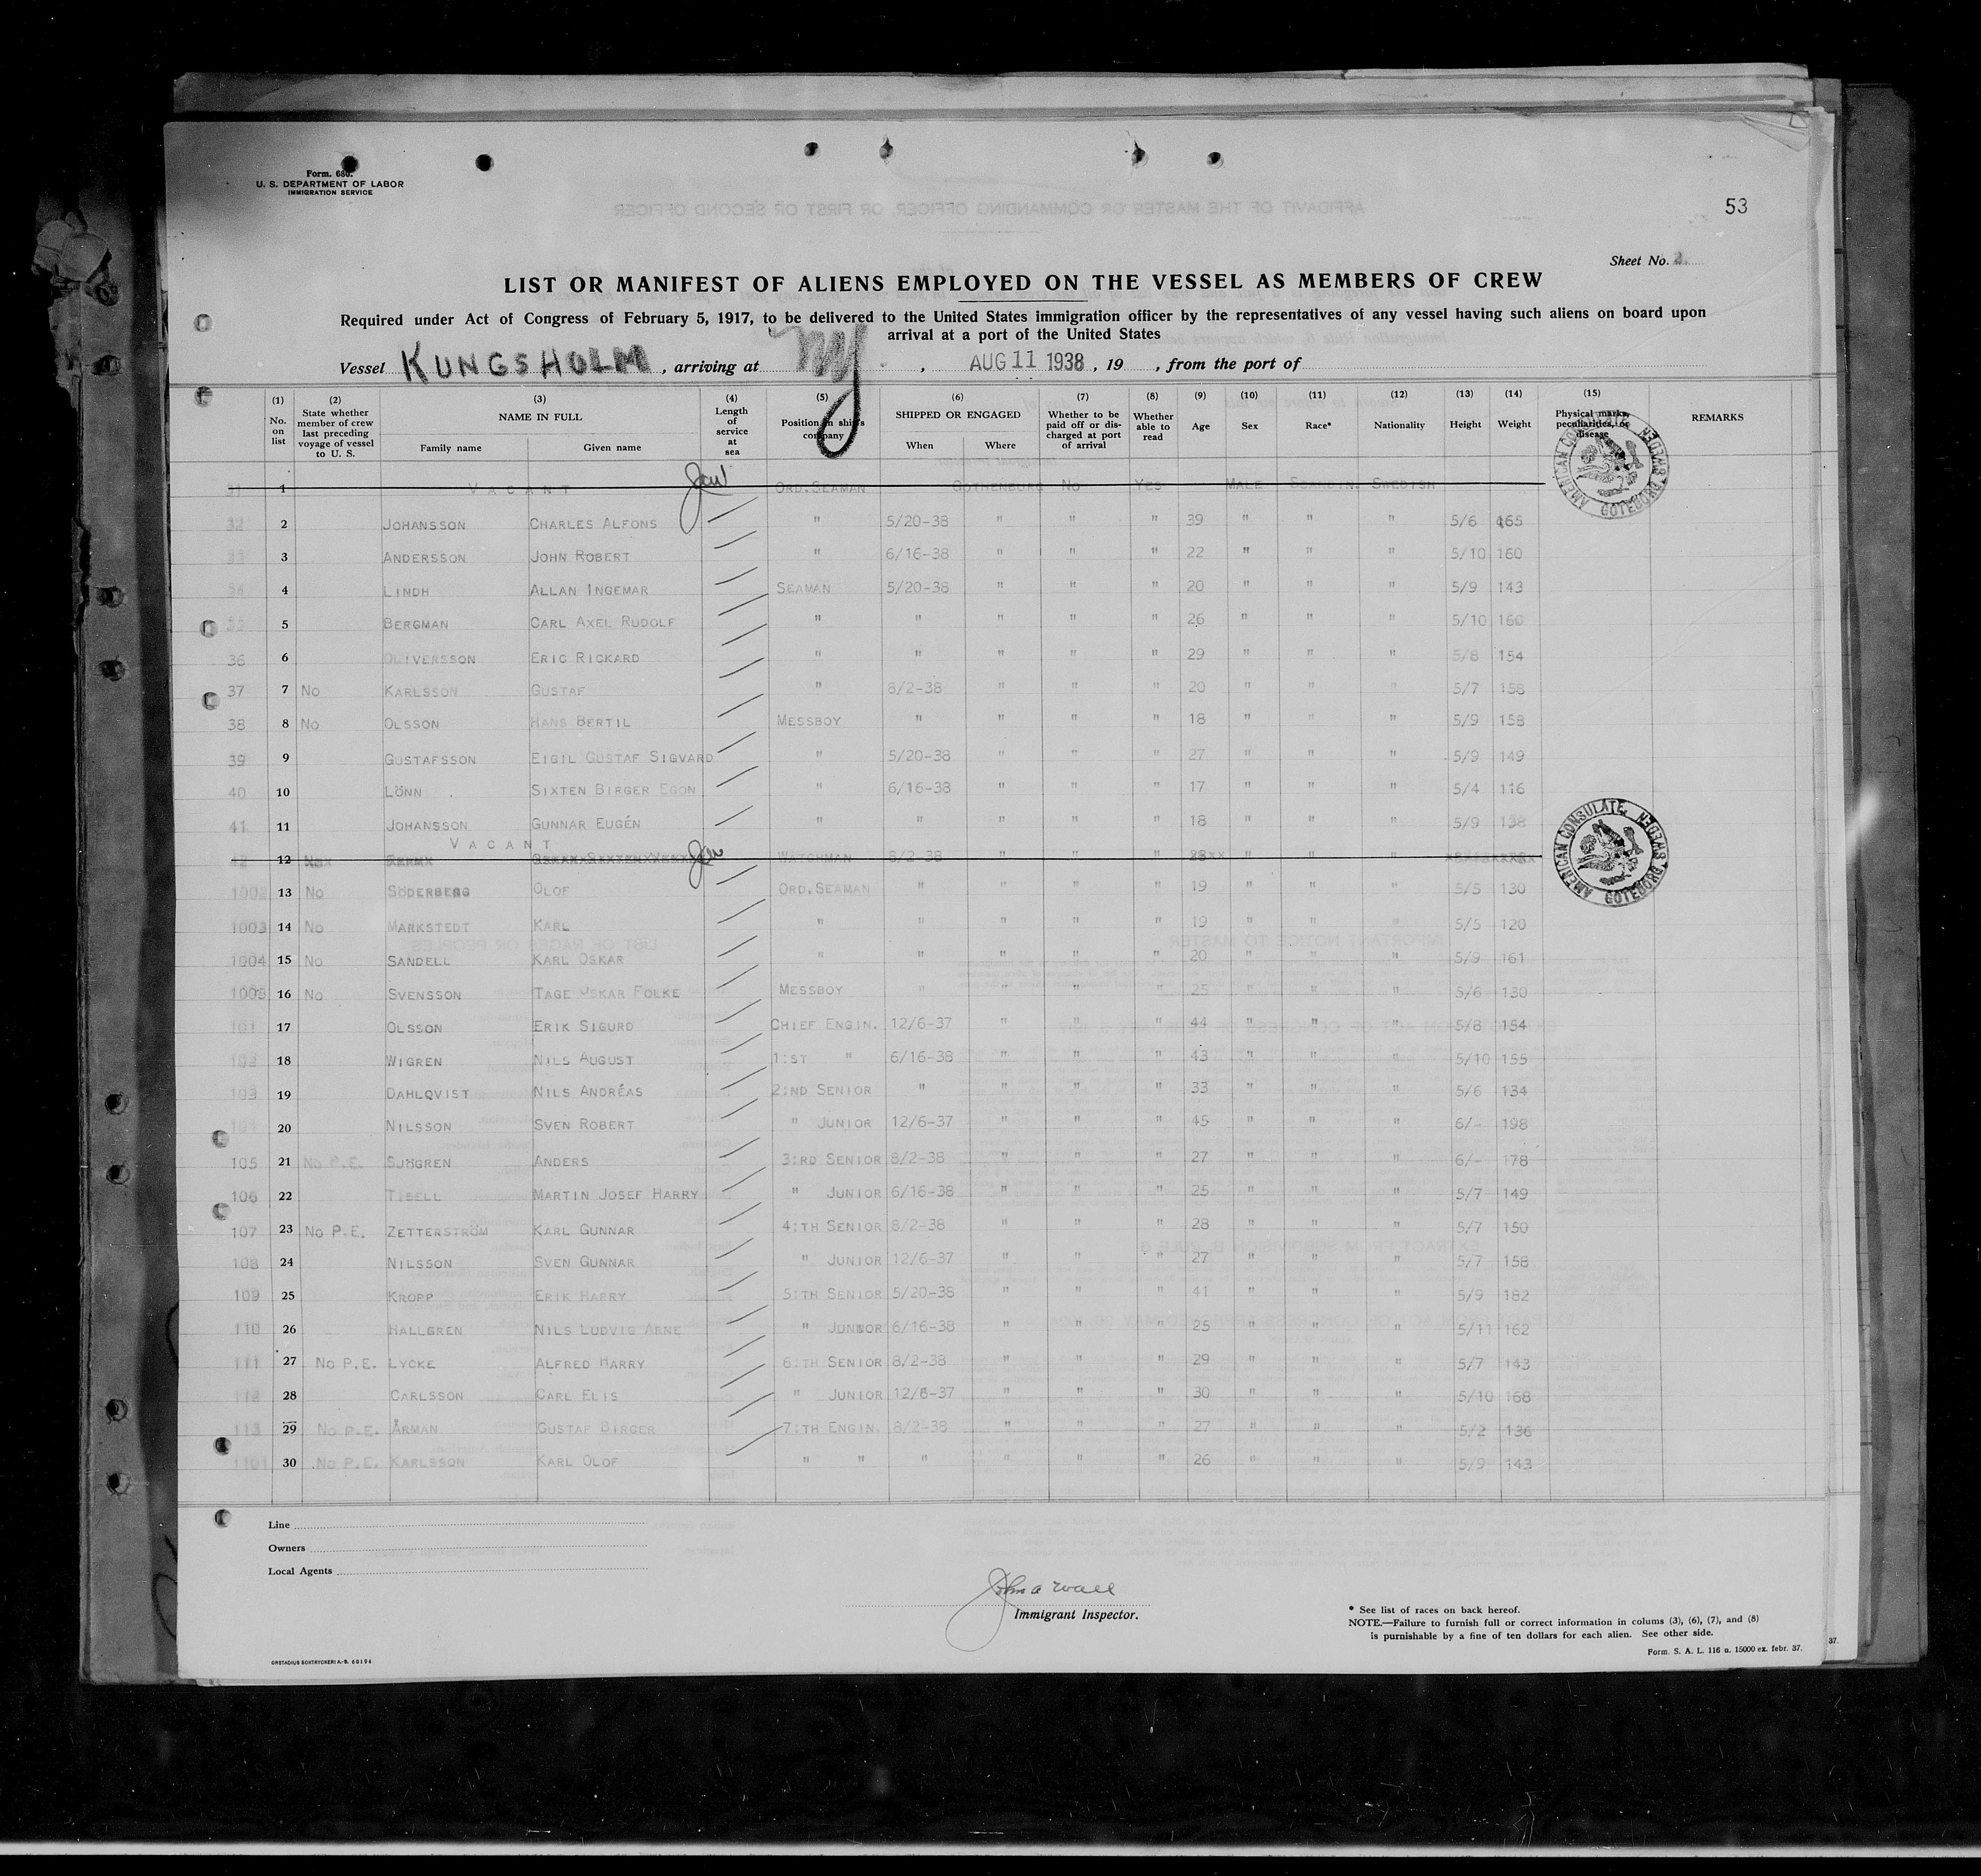 Form. 680.
U. S. DEPARTMENT OF LABOR
IMMIGRATION SERVICE
53
Sheet No. 2.
LIST OR MANIFEST OF ALIENS EMPLOYED ON THE VESSEL AS MEMBERS OF CREW
Required under Act of Congress of February 5, 1917, to be delivered to the United States immigration officer by the representatives of any vessel having such aliens on board upon
arrival at a port of the United States
Vessel KUNGSHOLM, arriving at NY, AUG 11 1938, 19 , from the port of
(1) No. on list (2) State whether member of crew last preceding voyage of vessel to U. S. (3) NAME IN FULL Family name Given name (4) Length of service at sea (5) Position in ship's company (6) SHIPPED OR ENGAGED When Where (7) Whether to be paid off or discharged at port of arrival (8) Whether able to read (9) Age (10) Sex (11) Race* (12) Nationality (13) Height (14) Weight (15) Physical marks, peculiarities, or disease REMARKS
31 1 VACANT ORD.SEAMAN GOTHENBURG NO YES MALE SCANDIN. SWEDISH
32 2 JOHANSSON CHARLES ALFONS " 5/20-38 " " " 39 " " " 5/6 165
33 3 ANDERSSON JOHN ROBERT " 6/16-38 " " " 22 " " " 5/10 160
34 4 LINDH ALLAN INGEMAR SEAMAN 5/20-38 " " " 20 " " " 5/9 143
35 5 BERGMAN CARL AXEL RUDOLF " " " " " 26 " " " 5/10 160
36 6 OLIVERSSON ERIC RICKARD " " " " " 29 " " " 5/8 154
37 7 NO KARLSSON GUSTAF " 8/2-38 " " " 20 " " " 5/7 158
38 8 NO OLSSON HANS BERTIL MESSBOY " " " " 18 " " " 5/9 158
39 9 GUSTAFSSON EIGIL GUSTAF SIGVARD " 5/20-38 " " " 27 " " " 5/9 149
40 10 LÖNN SIXTEN BIRGER EGON " 6/16-38 " " " 17 " " " 5/4 116
41 11 JOHANSSON GUNNAR EUGÉN " " " " " 18 " " " 5/9 138
VACANT
42 12 WATCHMAN 8/2-38 " " " " " "
1002 13 NO SÖDERBERG OLOF ORD.SEAMAN " " " " 19 " " " 5/5 130
1003 14 NO MARKSTEDT KARL " " " " " 19 " " " 5/5 120
1004 15 NO SANDELL KARL OSKAR " " " " " 20 " " " 5/9 161
1005 16 NO SVENSSON TAGE OSKAR FOLKE MESSBOY " " " " 25 " " " 5/6 130
101 17 OLSSON ERIK SIGURD CHIEF ENGIN. 12/6-37 " " " 44 " " " 5/8 154
102 18 WIGREN NILS AUGUST 1:ST " 6/16-38 " " " 43 " " " 5/10 155
103 19 DAHLQVIST NILS ANDRÉAS 2:ND SENIOR " " " " 33 " " " 5/6 134
104 20 NILSSON SVEN ROBERT " JUNIOR 12/6-37 " " " 45 " " " 6/- 198
105 21 NO P.E. SJÖGREN ANDERS 3:RD SENIOR 8/2-38 " " " 27 " " " 6/- 178
106 22 TIBELL MARTIN JOSEF HARRY " JUNIOR 6/16-38 " " " 25 " " " 5/7 149
107 23 NO P.E. ZETTERSTRÖM KARL GUNNAR 4:TH SENIOR 8/2-38 " " " 28 " " " 5/7 150
108 24 NILSSON SVEN GUNNAR " JUNIOR 12/6-37 " " " 27 " " " 5/7 158
109 25 KROPP ERIK HARRY 5:TH SENIOR 5/20-38 " " " 41 " " " 5/9 182
110 26 HALLGREN NILS LUDVIG ARNE " JUNIOR 6/16-38 " " " 25 " " " 5/11 162
111 27 NO P.E. LYCKE ALFRED HARRY 6:TH SENIOR 8/2-38 " " " 29 " " " 5/7 143
112 28 CARLSSON CARL ELIS " JUNIOR 12/6-37 " " " 30 " " " 5/10 168
113 29 NO P.E. ÅRMAN GUSTAF BIRGER 7:TH ENGIN. 8/2-38 " " " 27 " " " 5/2 136
1101 30 NO P.E. KARLSSON KARL OLOF " " " " " " 26 " " " 5/9 143
AMERICAN CONSULATE GOTEBORG SWEDEN
AMERICAN CONSULATE, GOTEBORG SWEDEN
Line
Owners
Local Agents
John A Wall
Immigrant Inspector.
* See list of races on back hereof.
NOTE.—Failure to furnish full or correct information in colums (3), (6), (7), and (8)
is punishable by a fine of ten dollars for each alien. See other side.
Form. S. A. L. 116 n. 15000 ex. febr. 37.
37.
ORSTADIUS BOKTRYCKERI A.-B. 60194